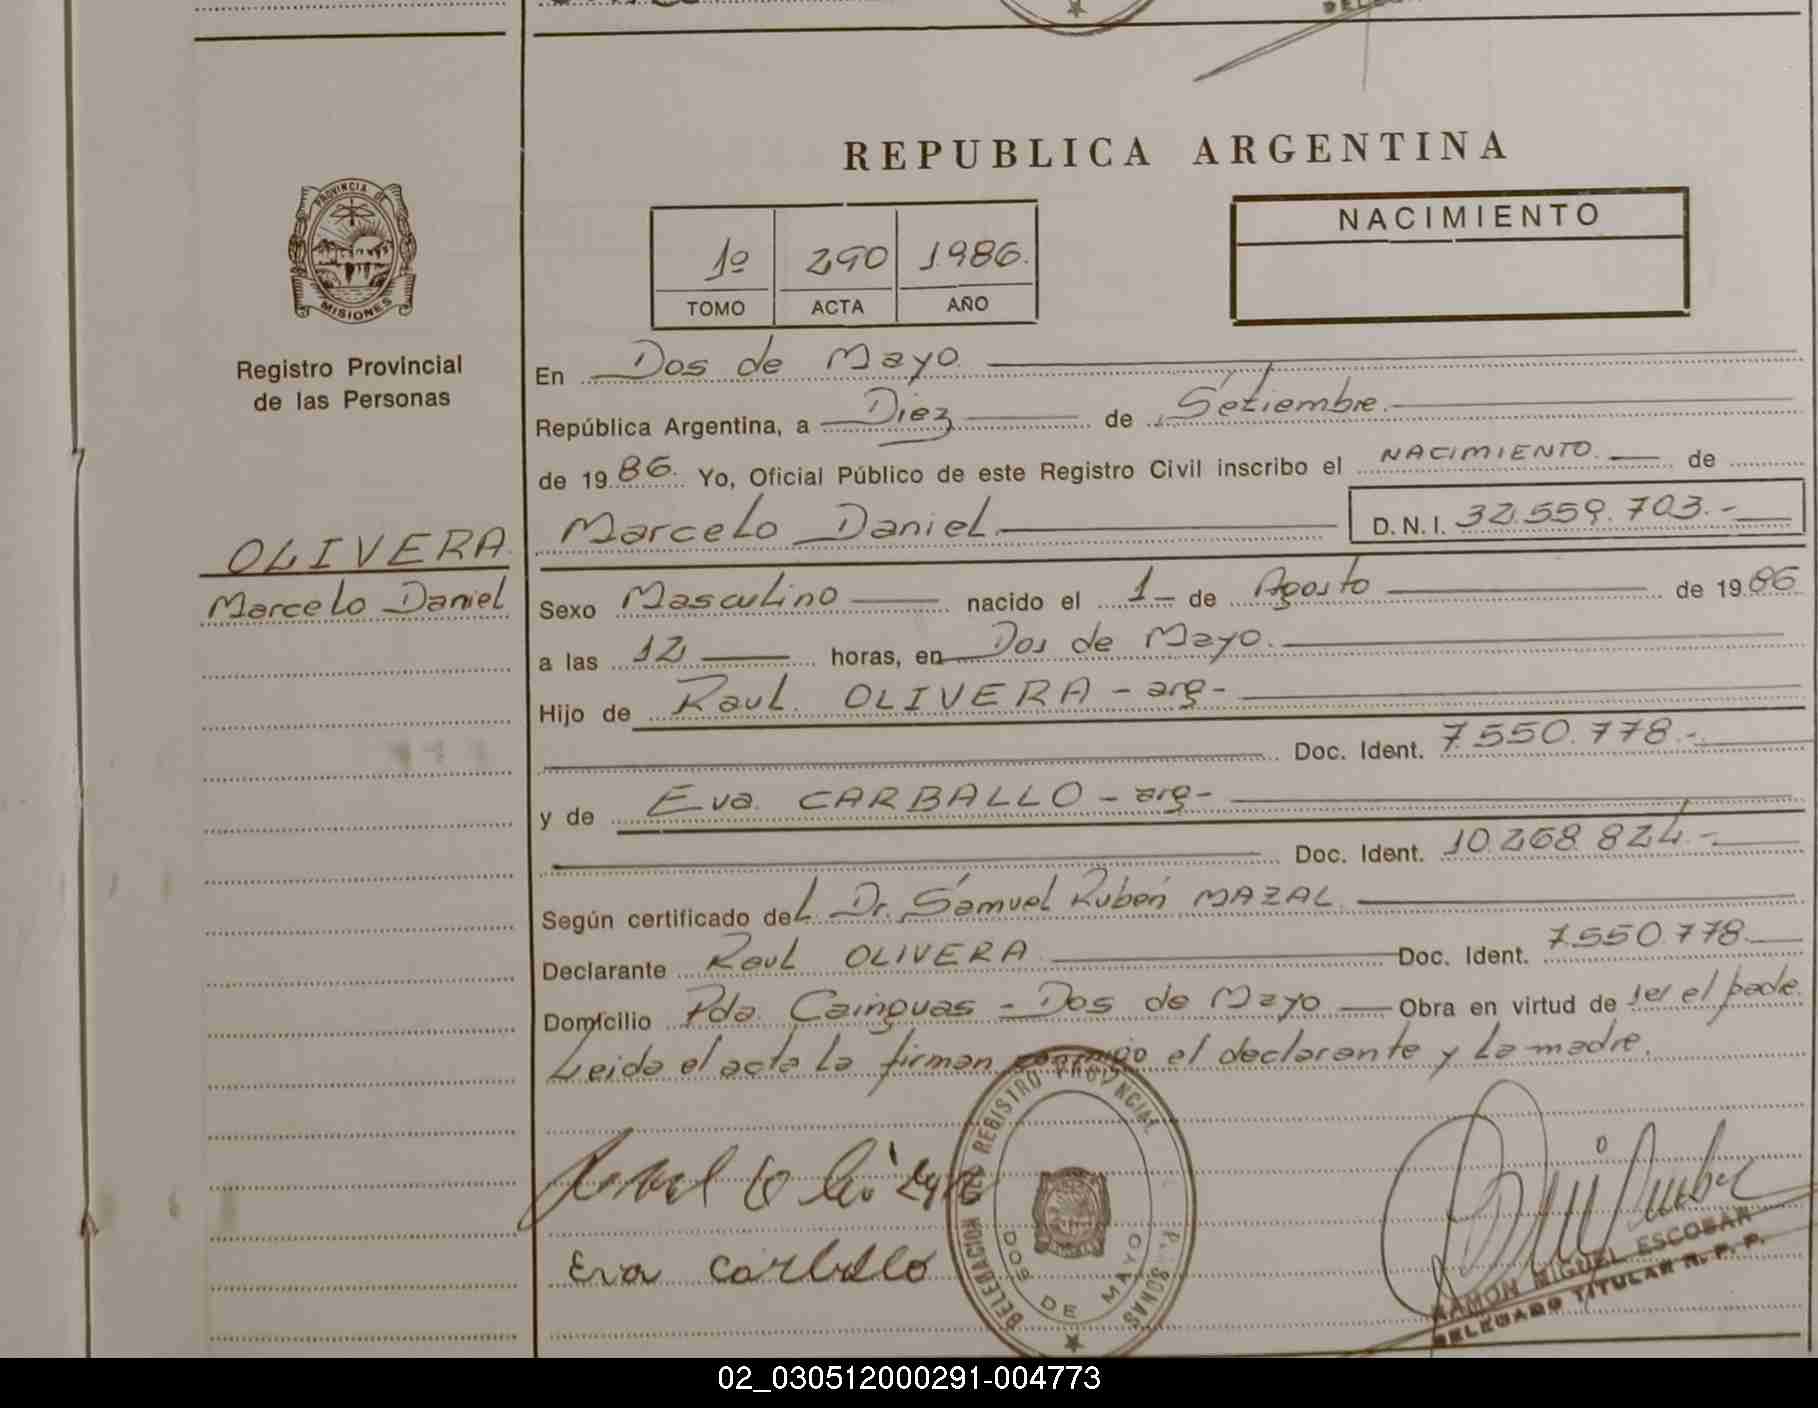 REPUBLICA ARGENTINA
PROVINCIA DE
MISIONES
Registro Provincial
de las Personas
1º 290 1986.
TOMO ACTA AÑO
NACIMIENTO
En Dos de Mayo.
República Argentina, a Diez de Setiembre.
de 19 86. Yo, Oficial Público de este Registro Civil inscribo el NACIMIENTO. de
Marcelo Daniel D.N.I. 32.559.703.-
OLIVERA
Marcelo Daniel
Sexo Masculino nacido el 1 de Agosto de 19 86
a las 12 horas, en Dos de Mayo.
Hijo de Raul. OLIVERA - arg-
Doc. Ident. 7.550.778.-
y de Eva. CARBALLO - arg-
Doc. Ident. 10.268.824.-
Según certificado del Dr. Samuel Rubén MAZAL
Declarante Raul OLIVERA Doc. Ident. 7.550.778.
Domicilio Pda. Cainguas - Dos de Mayo Obra en virtud de ser el padre.
Leida el acta la firman conmigo el declarante y la madre.
DELEGACION DEL REGISTRO PROVINCIAL
PERSONAS
DOS DE MAYO
Eva Carballo
RAMON MIGUEL ESCOBAR
DELEGADO TITULAR R. P. P.
02_030512000291-004773